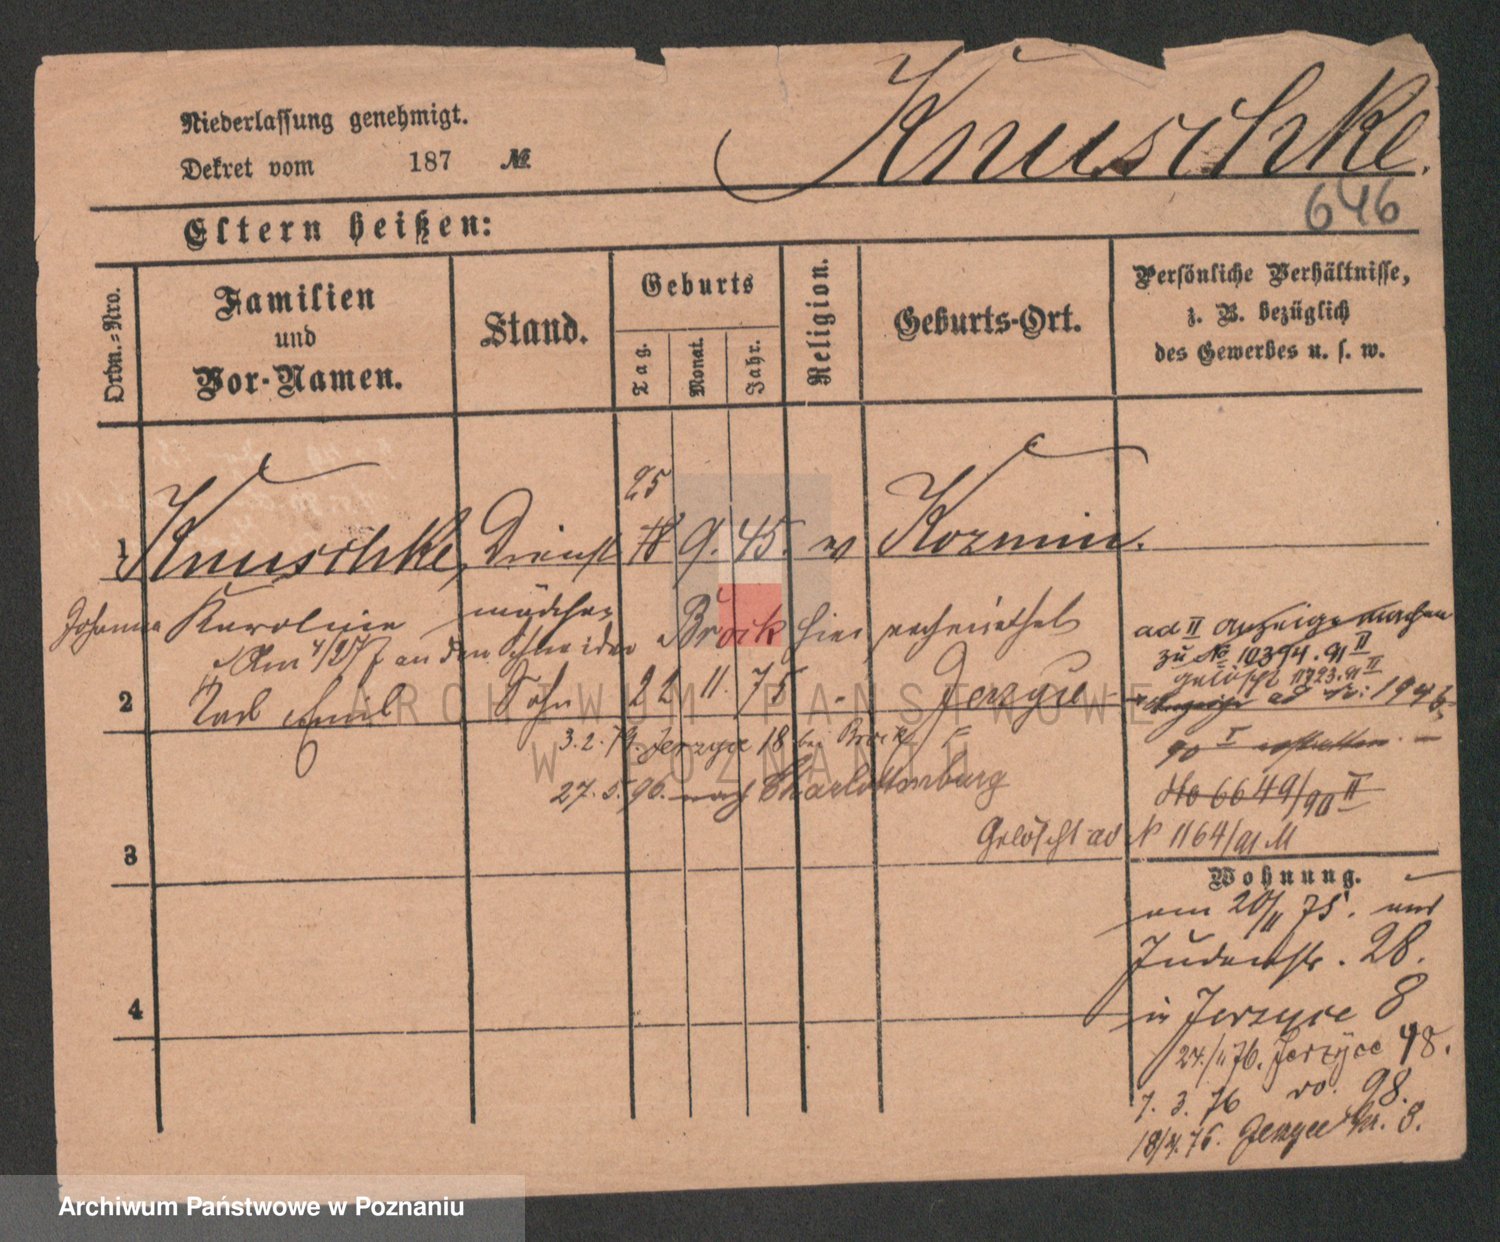 Niederlassung genehmigt.
Dekret vom 187 №
Knuschke.
646
Eltern heißen:
Ordn.-Nro.
Familien
und
Vor-Namen.
Stand.
Geburts
Tag.
Monat.
Jahr.
Religion.
Geburts-Ort.
Persönliche Verhältnisse,
z. B. bezüglich
des Gewerbes u. s. w.
25
1 Knuschke, Dienst 18 9. 45. ev Kozmin.
Johanna Karoline mädchen
Am an den Schneider Brock hier verheirathet
ad II Anzeige machen
zu № 10394.91 II
gelöscht 1723.91 II
2 Karl Emil Sohn 22 11. 75 - Jerzyce
Anzeige ad Nr: 1946
90 I
3.2.79. Jerzyce 18 bei Brock
27.5.90. nach Charlottenburg
No 6649/90 II
Gelöscht ad № 1164/91 M
3
Wohnung.
am 20/11 75. aus
Judenstr. 28.
4
in Jerzyce 8
24./11 76. Jerzyce 48.
7. 3. 76 98.
18/4. 76. Jerzyce Nr. 8.
ARCHIWUM PAŃSTWOWE
W POZNANIU
Archiwum Państwowe w Poznaniu